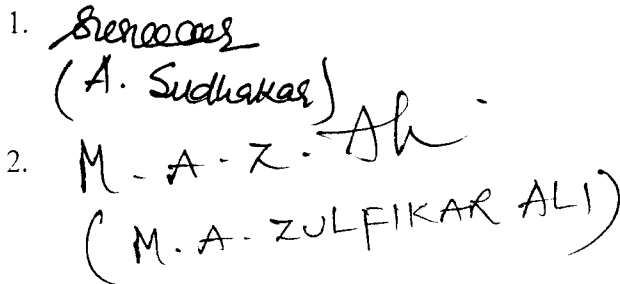 1.
(A. Sudhakar)
2. M. A. Z. Ali
(M. A. ZULFIKAR ALI)